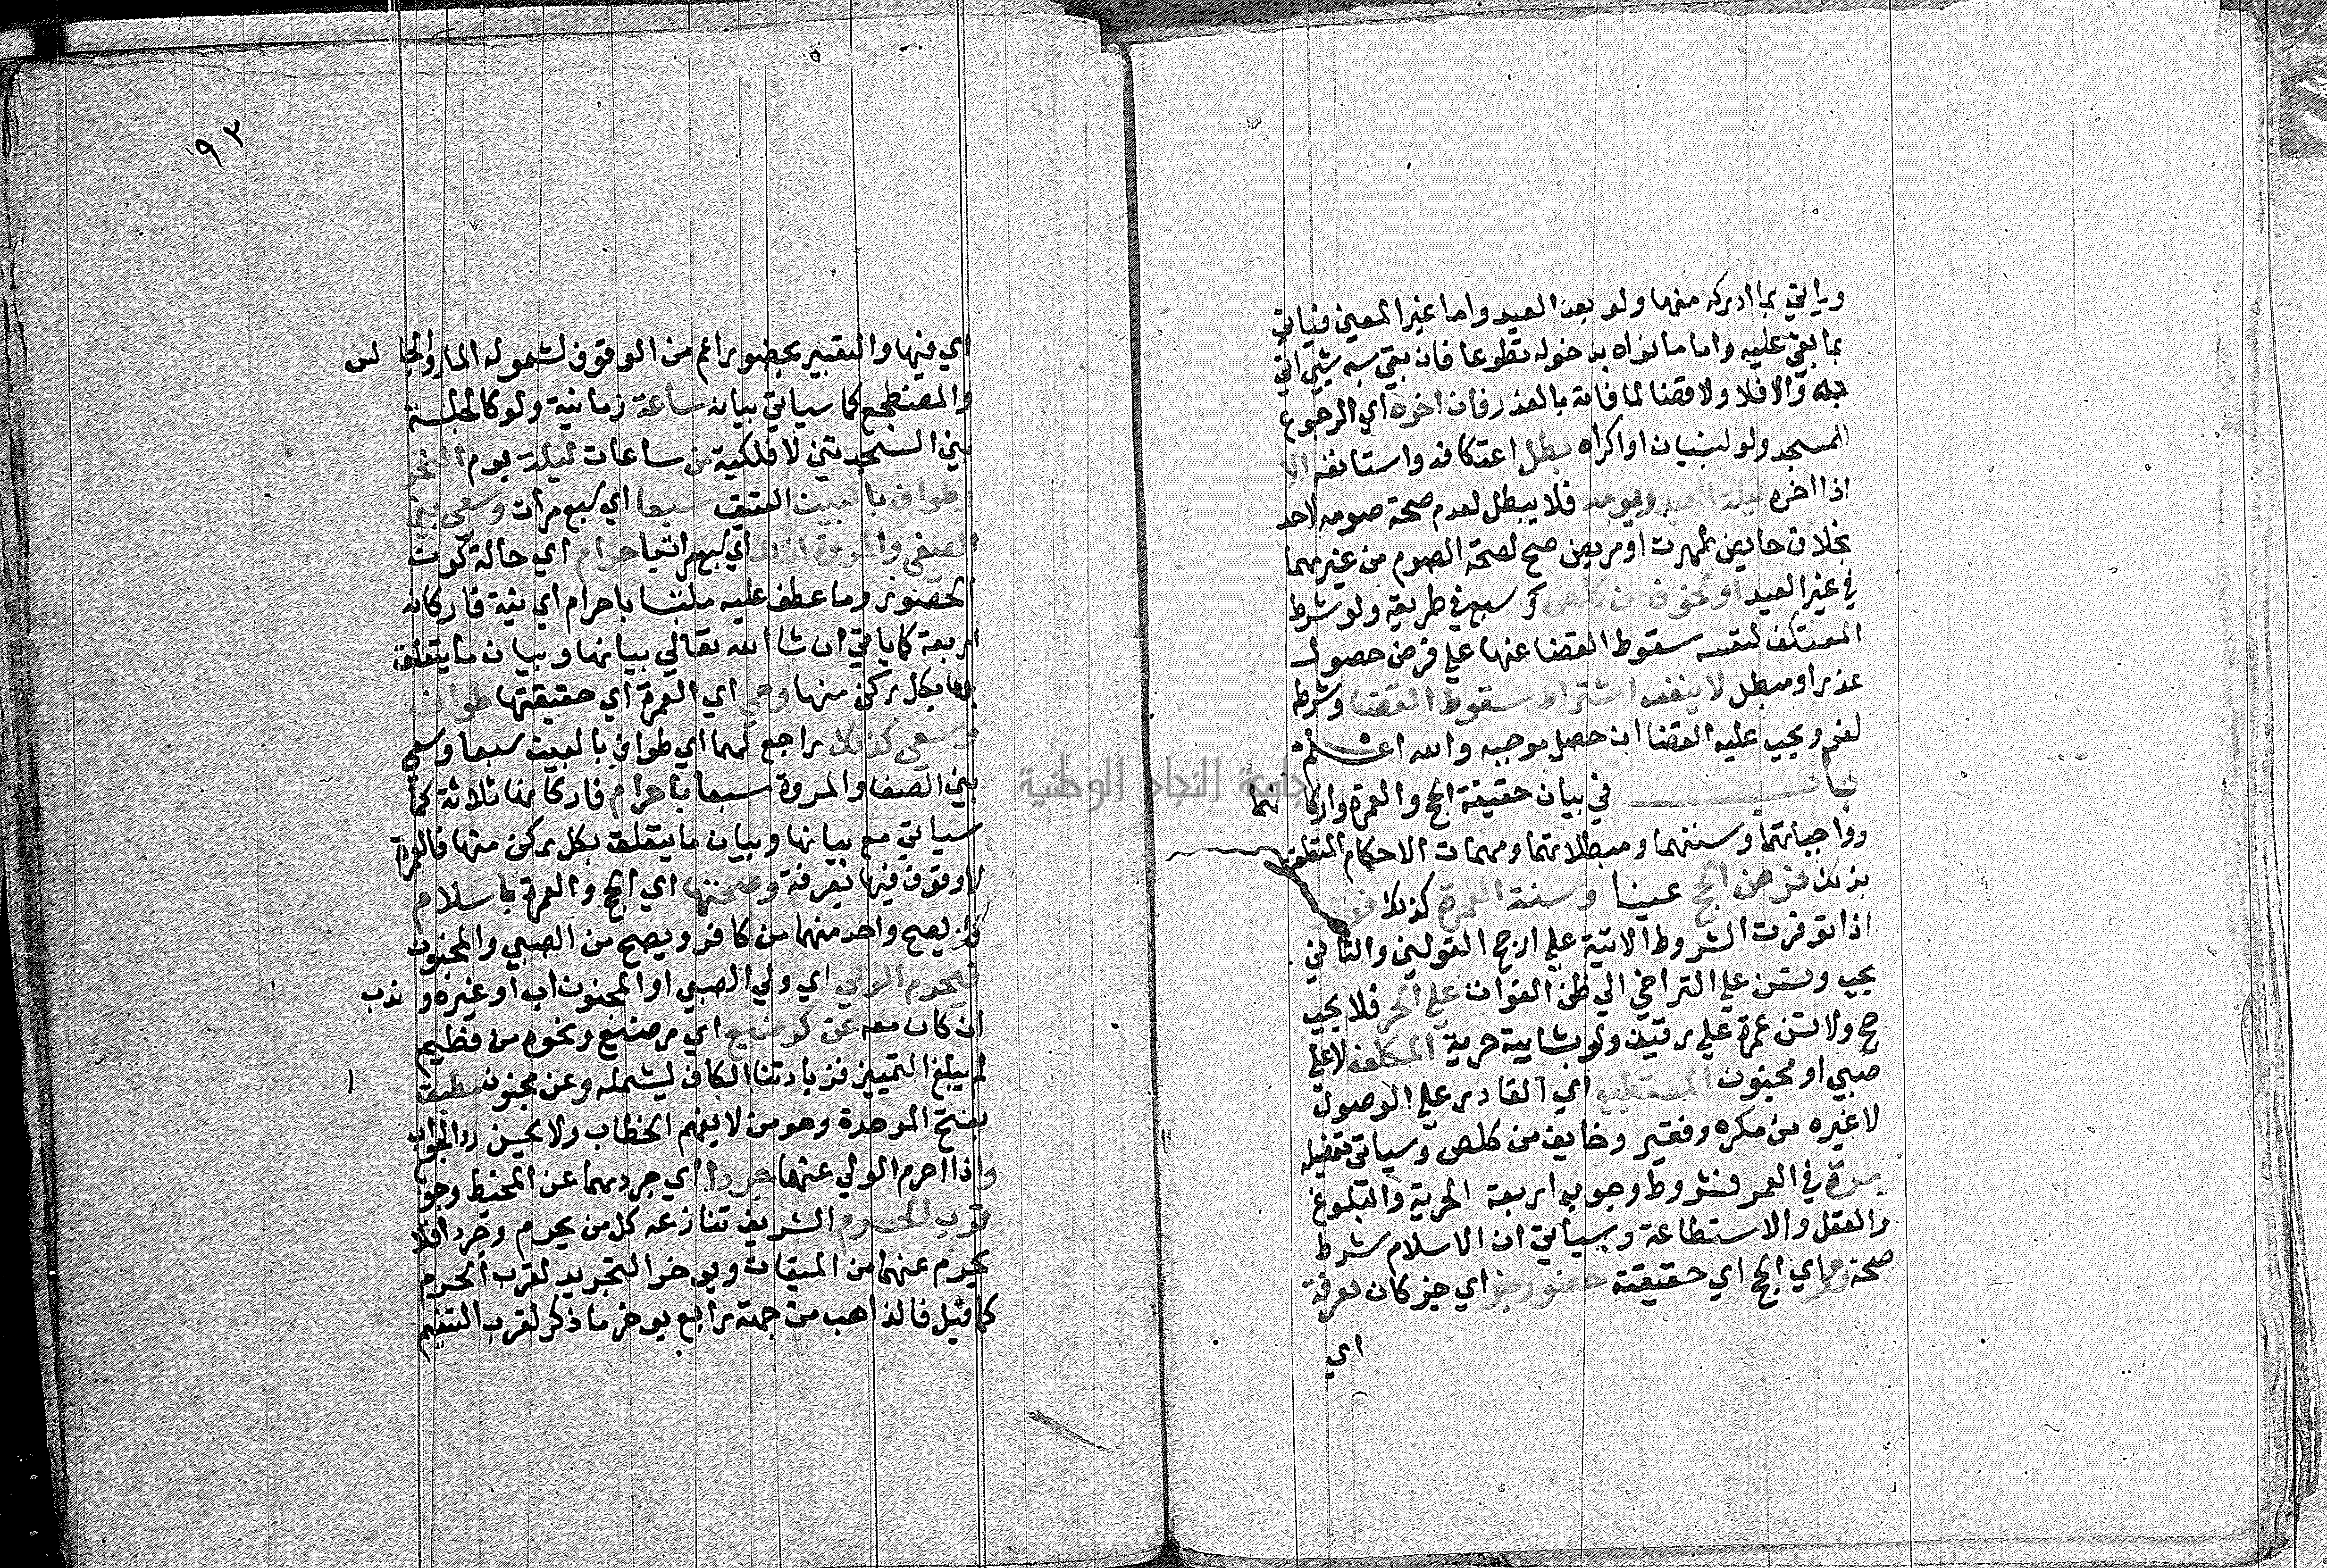 وياتي بما ادركه منها ولو بعد العيد واما غير المعين فياتي
بما بقي عليه واما ما نواه بدخوله تطوعا فان بقي شيي اتي
به والا فلا ولا قضا لما فاته بالعذر فان اخره اي الرجوع
للمسجد ولو لنسيان او اكراه بطل اعتكافه واستانفه الا
اذا اخره ليلة العيد ويومه فلا يبطل لعدم صحة صومه لاحد
بخلاف حايض طهرت او مريض صح لصحة الصوم من غيرهما
في غير العيد او لخوف من كلص كر سبع في طريقه ولو شرط
المعتكف لنفسه سقوط القضا عنها علي فرض حصول
عذر او مبطل لا ينفعه اشتراط سقوط القضا وشرطه
لغو ويجب عليه القضا ان حصل موجبه والله اعلم
باب في بيان حقيقة الحج والعمرة واركانهما
وواجباتهما وسننهما ومبطلاتهما ومهمات الاحكام المتعلقة
بذلك فرض الحج عينا وسنة العمرة كذلك فورا
اذا توفرت الشروط الاتية علي ارجح القولين والثاني
يجب وتسن علي التراخي الي ظن الفوات علي الحر فلا يجب
حج ولا تسن عمرة علي رقيق ولو بشايبة حرية المكلف لا علي
صبي او مجنون المستطيع اي القادر علي الوصول
لا غيره من مكره وفقير وخايف من كلص وسياتي تفصيله
مرة في العمر فشروط وجوبه اربعة الحرية والبلوغ
والعقل والاستطاعة وسياتي ان الاسلام شرط
صحة وهو اي الحج اي حقيقته حضور جزء اي جزء كان بعرفة
اي
٩٣
اي فيها والتعبير بحضور اعم من الوقوف لشموله المار والجالس
والمضطجع كما سياتي بيانه ساعة زمانية ولو كالجلسة
بين السجدتين لا فلكية من ساعات ليلة يوم النحر
وطواف بالبيت العتيق سبعا اي سبع مرات وسعي بين
الصفي والمروة كذلك اي سبع مرات باحرام اي حالة كون
الحضور وما عطف عليه ملتبسا باحرام اي نية فاركانه
اربعة كما ياتي ان شا الله تعالي بيانها وبيان ما يتعلق
بها بكل ركن منها وهي اي العمرة اي حقيقتها طواف
وسعي كذلك راجع لهما اي طواف بالبيت سبعا وسعي
بين الصفا والمروة سبعا باحرام فاركانها ثلاثة كما
سياتي مع بيانها وبيان ما يتعلق بكل ركن منها فالعمرة
لا وقوف فيها بعرفة وصحتهما اي الحج والعمرة باسلام
فلا يصح واحد منهما من كافر ويصح من الصبي والمجنون
فيحرم الولي اي ولي الصبي او المجنون اب او غيره و ندب
ان كان معه عن كرضيع اي مرضع ونحوه من فطيم
لم يبلغ التمييز فزيادتنا الكاف ليشمله وعن مجنون مطبق
بفتح الموحدة وهو من لا يفهم الخطاب ولا يحسن رد الجواب
واذا احرم الولي عنهما جردا اي جردهما عن المخيط وجوبا
قرب الحرم الشريف تنازعه كل من يحرم وجردا فلا
يحرم عنهما من الميقات ويوخر التجريد لقرب الحرم
كما قيل فالذاهب من جهة رابغ يوخر ما ذكر لقرب التنعيم
جامعة النجاح الوطنية